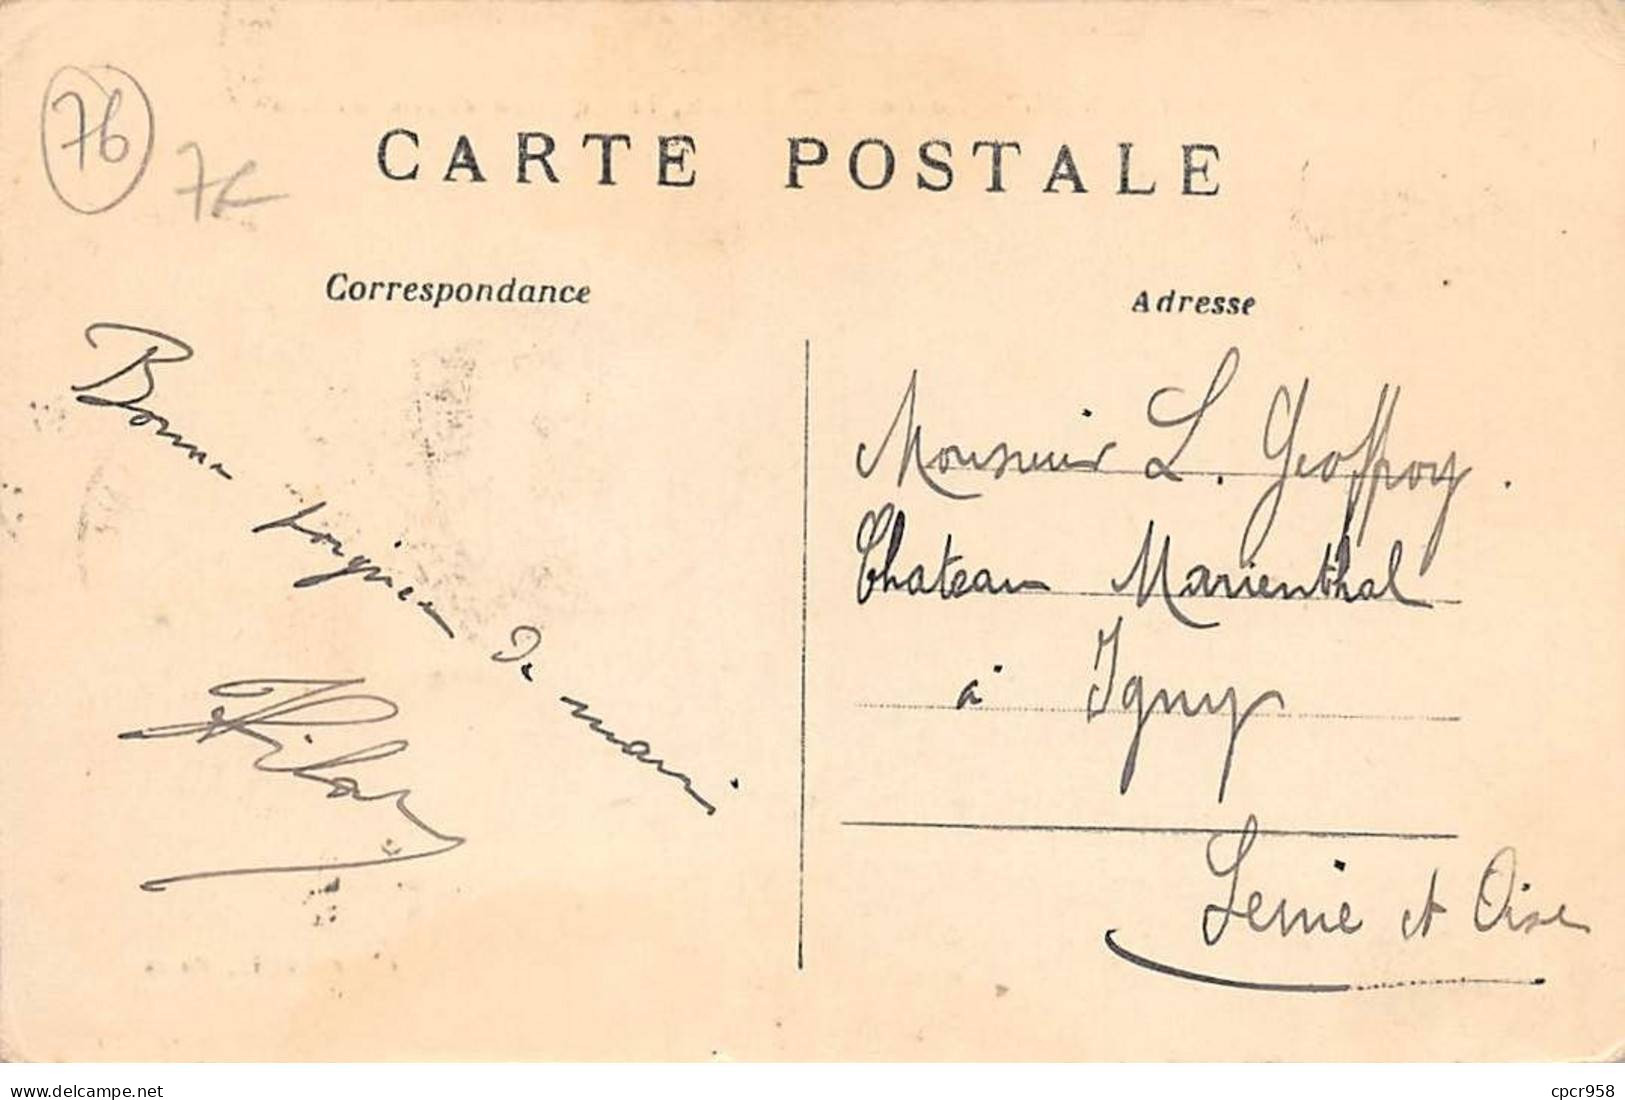 76
CARTE POSTALE
Correspondance
Adresse
Bonne poignée de main
Monsieur L. Geoffroy.
Chateau Marienthal
à Igny
Seine et Oise
www.delcampe.net
cpcr958